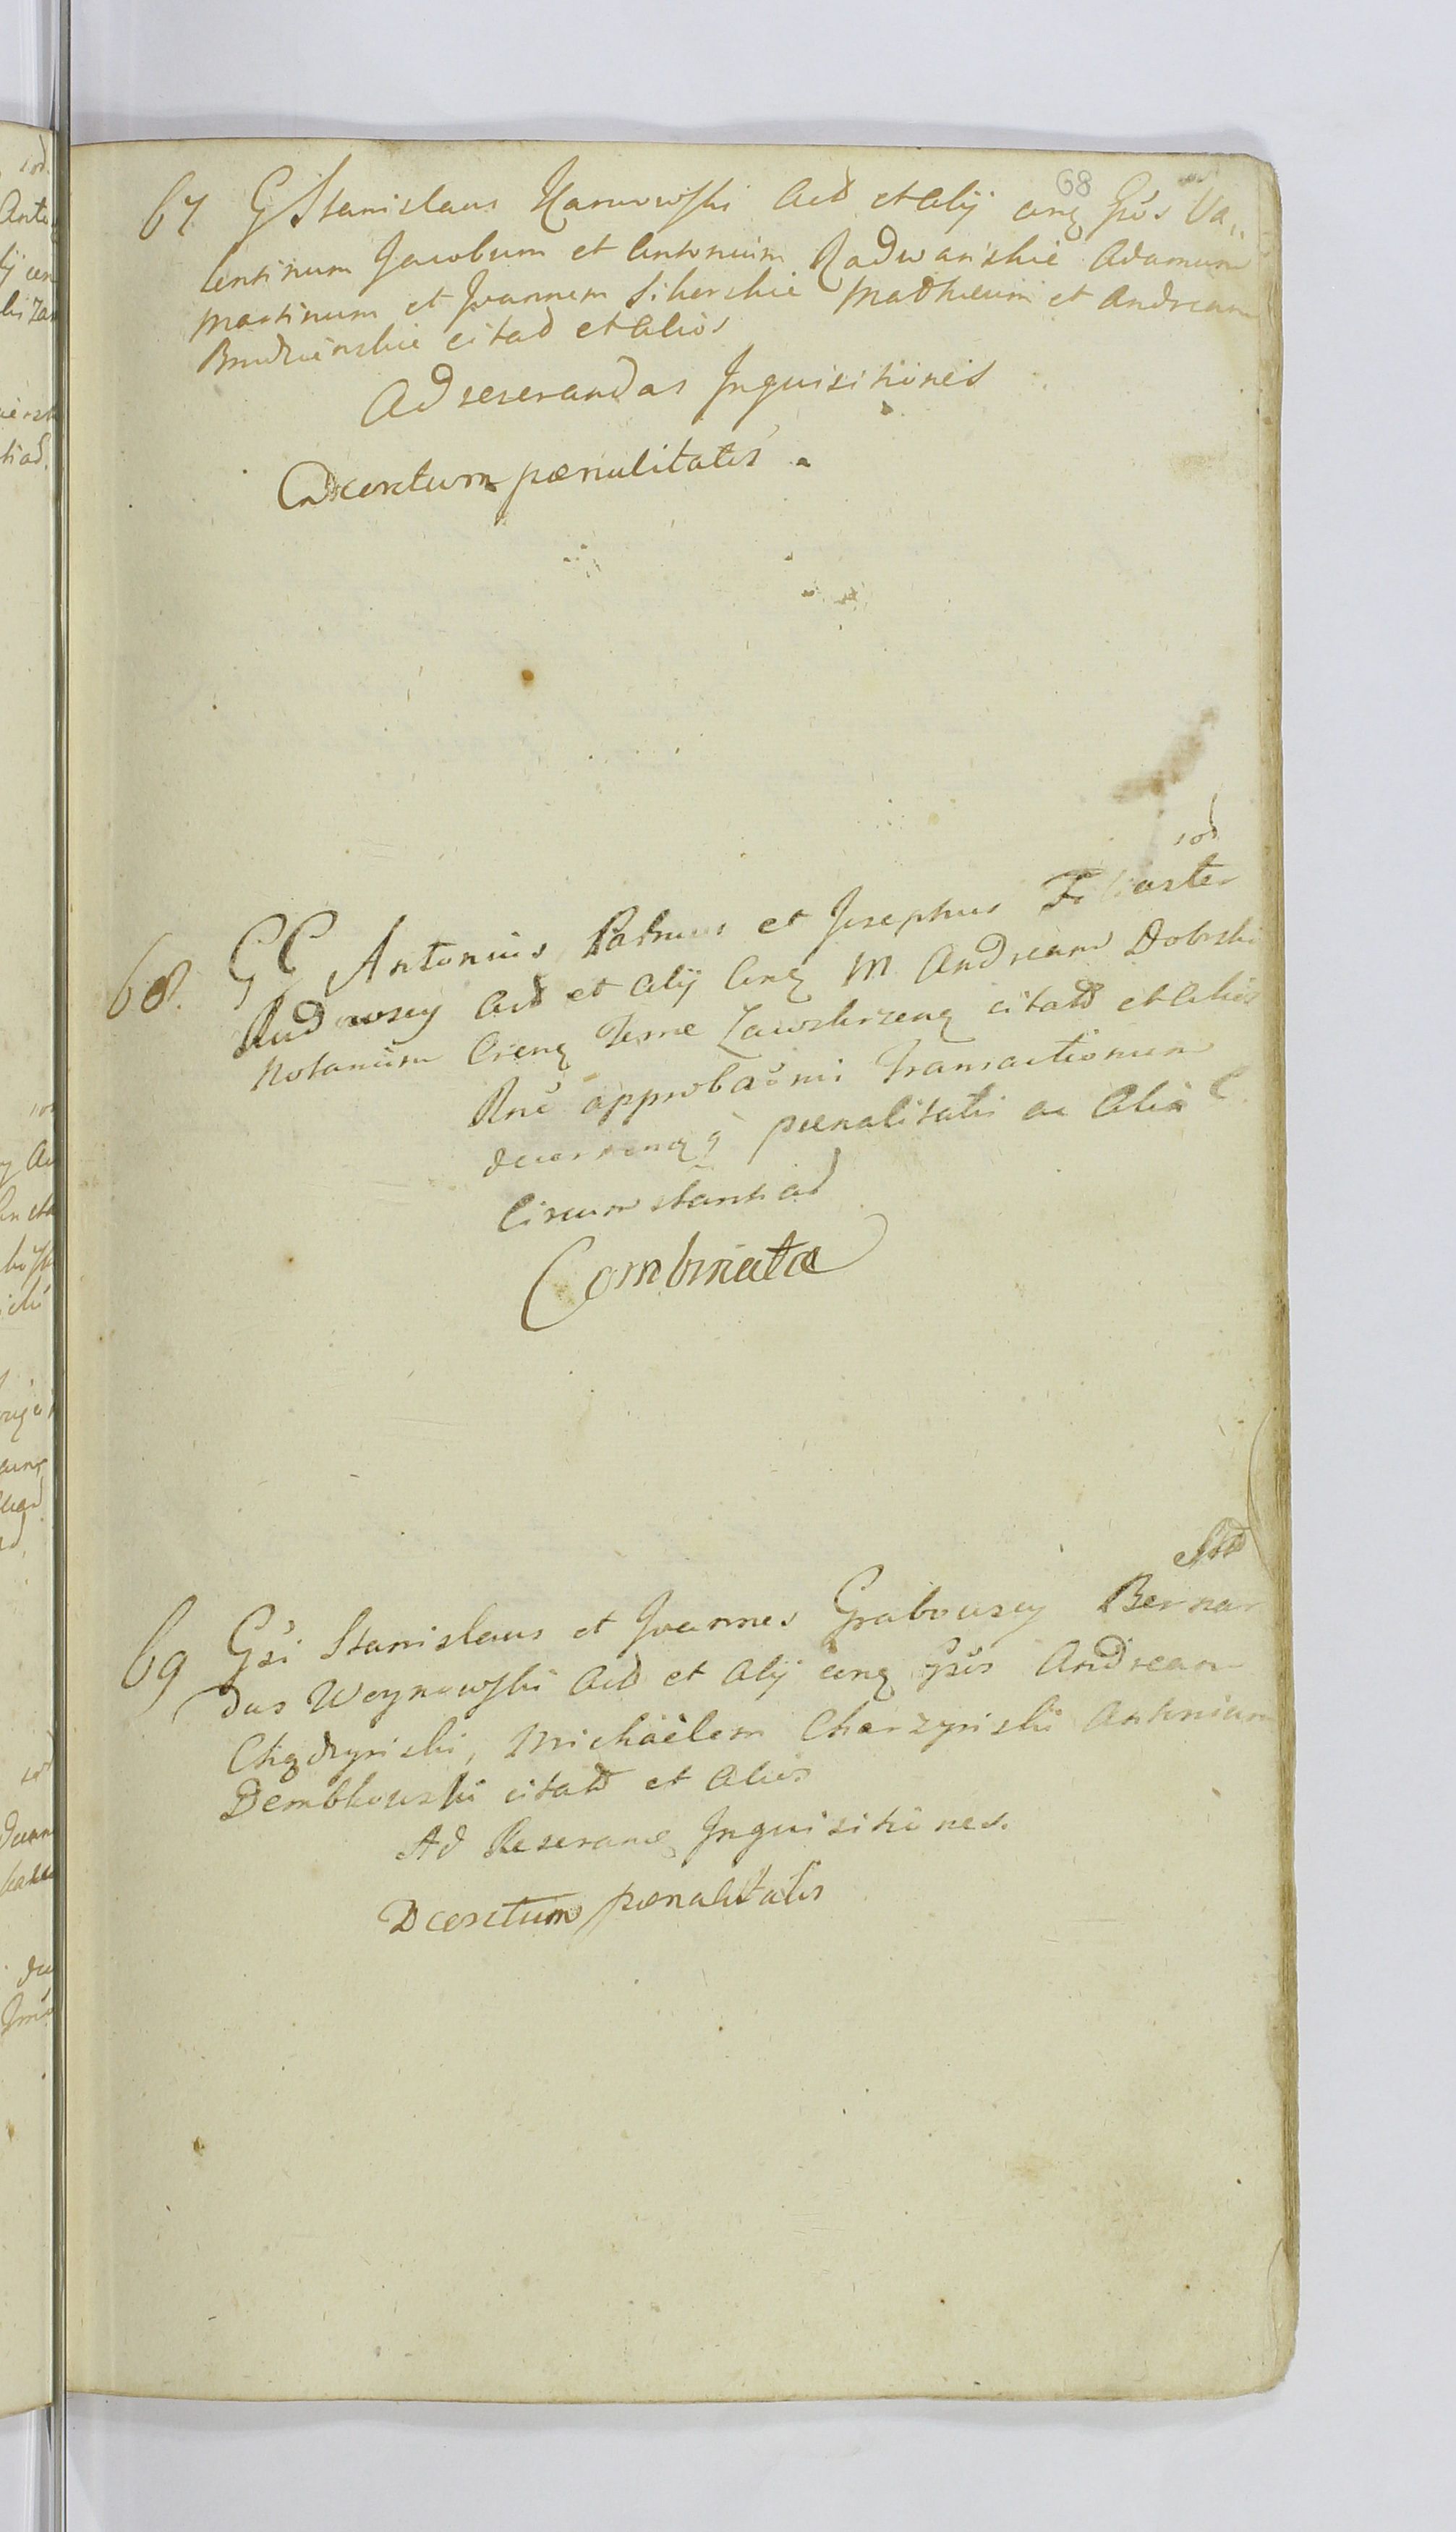 68
67 G Stanislaus Karnowski Act et Alij cing Gsos Va„
lentinum Jacobum et Antonium Radwanskie Adamum
Martinum et Joannem Sikorskie Mathæum et Andream
Budzienskie citad et Alios
Ad reserandas Inquisitiones
Decretum pœnalitatis
sod
68. GG Antonius, Patruus et Josephus Filiaster
Rudowscy Act et Alij cing M Andream Dobrski
Notarium Crenz Terræ Zawskrzenz citatt et Alios
Rne approbaōnis Transactionum
pœnalitatis ac Alia C
Circumstantiad
Combinata
69 Gsi Stanislaus et Joannes Grabowscy Bernar
dus Woynowski Act et Alij cing Gsos Andream
Chądzynski, Michäelem Charzynski Antonium
Dembkowski citatt et Alios
Ad Reseranđ Inquisitiones.
Decretum pœnalitatis